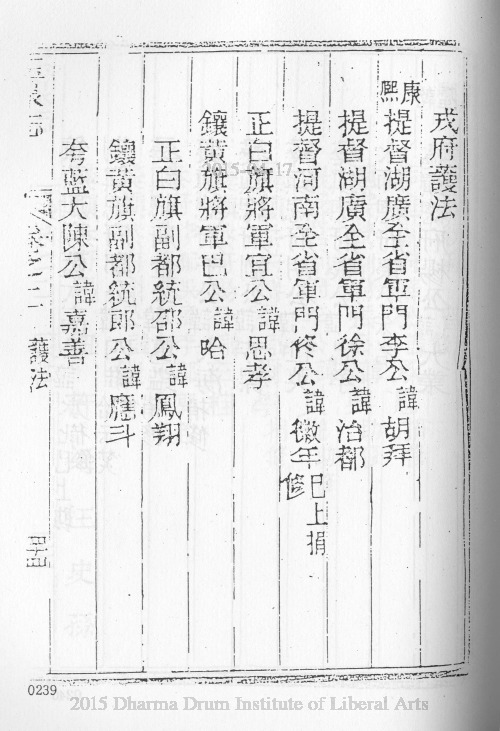 戎府護法
康熙提督湖廣全省軍門李公諱胡拜
提督湖廣全省軍門徐公諱治都
提督河南全省軍門佟公諱徽年巳上捐修
正白旗將軍官公諱思孝
鑲黃旗將軍巴公諱哈
正白旗副都統邵公諱鳳翔
鑲黃旗副都統郎公諱應斗
夸藍大陳公諱嘉善
卷之二 護法
0239
2015 Dharma Drum Institute of Liberal Arts